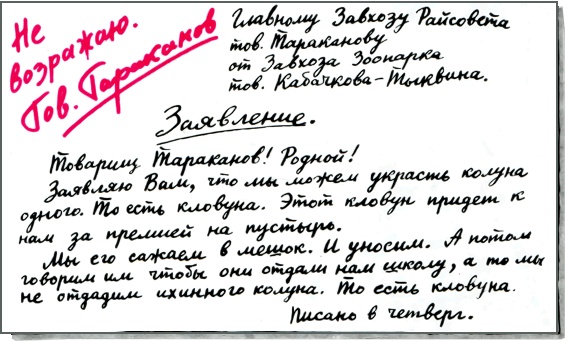 Не
возражаю.
Тов. Тараканов
Главному Завхозу Райсовета
тов. Тараканову
от Завхоза Зоопарка
тов. Кабачкова-Тыквина.
Заявление.
Товарищ Тараканов! Родной!
Заявляю Вам, что мы можем украсть колуна
одного. То есть кловуна. Этот кловун придет к
нам за премией на пустырь.
Мы его сажаем в мешок. И уносим. А потом
говорим им чтобы они отдали нам школу, а то мы
не отдадим ихинного колуна. То есть кловуна.
Писано в четверг.